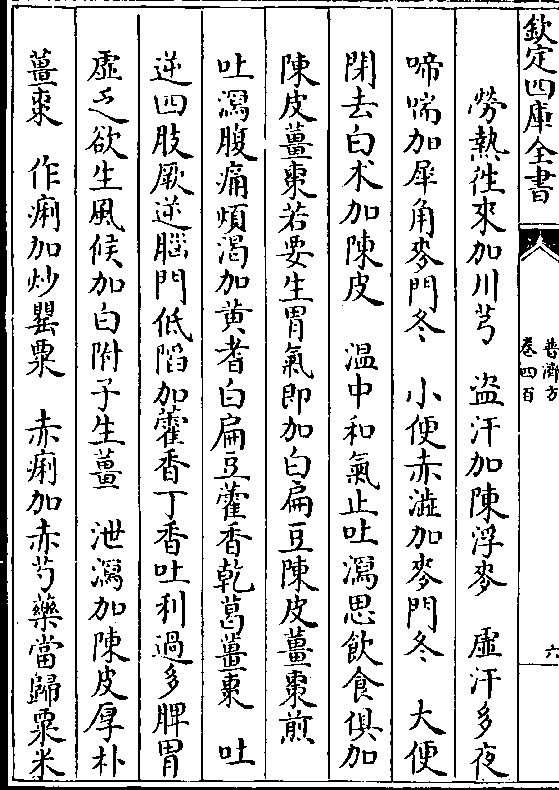 欽定四庫全書
普濟方
卷四百
六
勞熱徃來加川芎　盗汗加陳浮麥　虛汗多夜
啼喘加犀角麥門冬　小便赤澁加麥門冬　大便
閉去白术加陳皮　溫中和氣止吐瀉思飲食俱加
陳皮薑棗若要生胃氣即加白扁豆陳皮薑棗煎
吐瀉腹痛煩渴加黄耆白扁豆藿香乾葛薑棗　吐
逆四肢厥逆腦門低陷加藿香丁香吐利過多脾胃
虛乏欲生風候加白附子生薑　泄瀉加陳皮厚朴
薑棗　作痢加炒罌粟　赤痢加赤芍藥當歸粟米